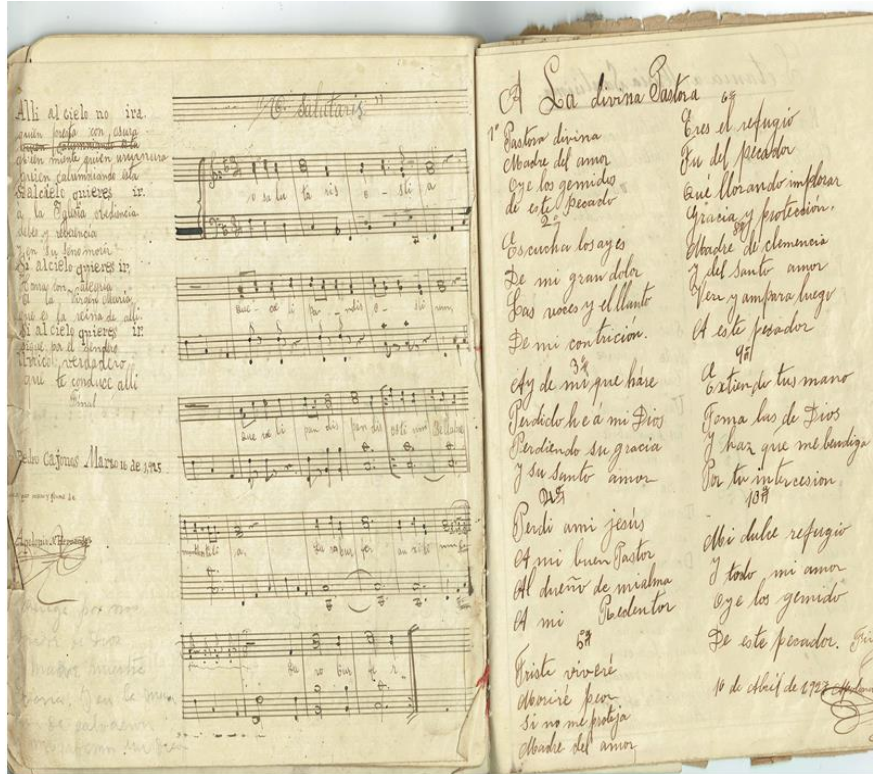 Alli al cielo no ira.
quien presta con usura
quien calumniando esta
quien miente quien murmura
quien calumniando esta
Si al cielo quieres ir.
a la Iglesia obediencia
debes y reberencia
y en su seno morir
Si al cielo quieres ir.
Ama con alegria
A la Virgen Maria,
que es la reina de alli.
Si al cielo quieres ir
sigue por el sendero
Unico, verdadero,
que te conduce alli
Final
Pedro Cajonos Marzo 11 de 1925
"O Salutaris"
o sa lu ta ris o - sti a
quæ - ce li pan - dis o - sti um
quæ ce li pan dis pan dis osti um Bella pre
munt hostili a. Da robur fer au xi li um
Da ro bur fer
A La divina Pastora
1ª
Pastora divina
Madre del amor
Oye los gemidos
de este pecado
2ª
Escucha los ayes
De mi gran dolor
Las voces y el llanto
De mi contrición.
3ª
Ay de mi que háre
Perdido he á mi Dios
Perdiendo su gracia
Y su santo amor
4ª
Perdi a mi jesús
A mi buen Pastor
Al dueño de mi alma
A mi Redentor
5ª
Triste viveré
Moriré peor
Si no me proteja
Madre del amor
6ª
Eres el refugio
Tu del pecador
Qué llorando implorar
Gracia y protección.
8ª
Madre de clemencia
Y del santo amor
Ven y ampara luego
A este pecador
9ª
Extiende tus mano
Toma las de Dios
Y haz que me bendiga
Por tu intercesion
10ª
Mi dulce refugio
Y todo mi amor
Oye los gemido
De este pecador.
10 de Abril de 1927